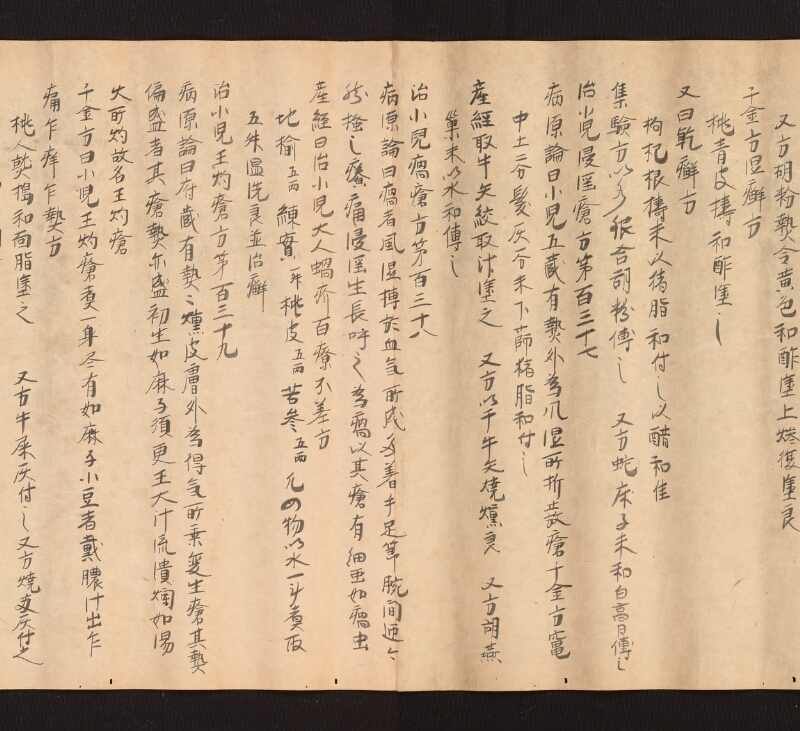 又方胡粉熬令黄色和酢塗上燥復塗良
千金方湿癬方
桃青皮擣和酢塗之
又曰乾癬方
枸杞根擣末以猪脂和付之以醋和佳
集験方以水銀合胡粉傅之 又方蛇床子末和白膏傅之
治小児浸淫瘡方第百三十七
病源論曰小児五蔵有熱外為風湿所折発瘡千金方竃
中土二分髪灰分末下篩猪脂和付之
産経取牛矢絞取汁塗之 又方以干牛矢焼燻良 又方胡燕
巣末以水和傅之
治小児瘑瘡方第百三十八
病源論曰瘑者風湿搏於血気所成多着手足節腕間迊々
然掻之痒痛浸淫生長呼之為瘑以其瘡有細虫如瘑虫
産経曰治小児大人蝸疥百療不差方
地楡五両 練實一升 桃皮五両 苦参五両 凡四物以水一斗煮取
五升温洗良並治癬
治小児王灼瘡方第百三十九
病源論曰府蔵有熱々燻皮膚外為得気所乗変生瘡其熱
偏盛者其瘡熱亦盛初生如麻子須更王大汁流潰爛如湯
火所灼故名王灼瘡
千金方曰小児王灼瘡一身尽有如麻子小豆者戴膿汁出乍
痛乍痒乍熱方
桃人熟擣和面脂塗之 又方牛屎灰付之又方焼灰付之